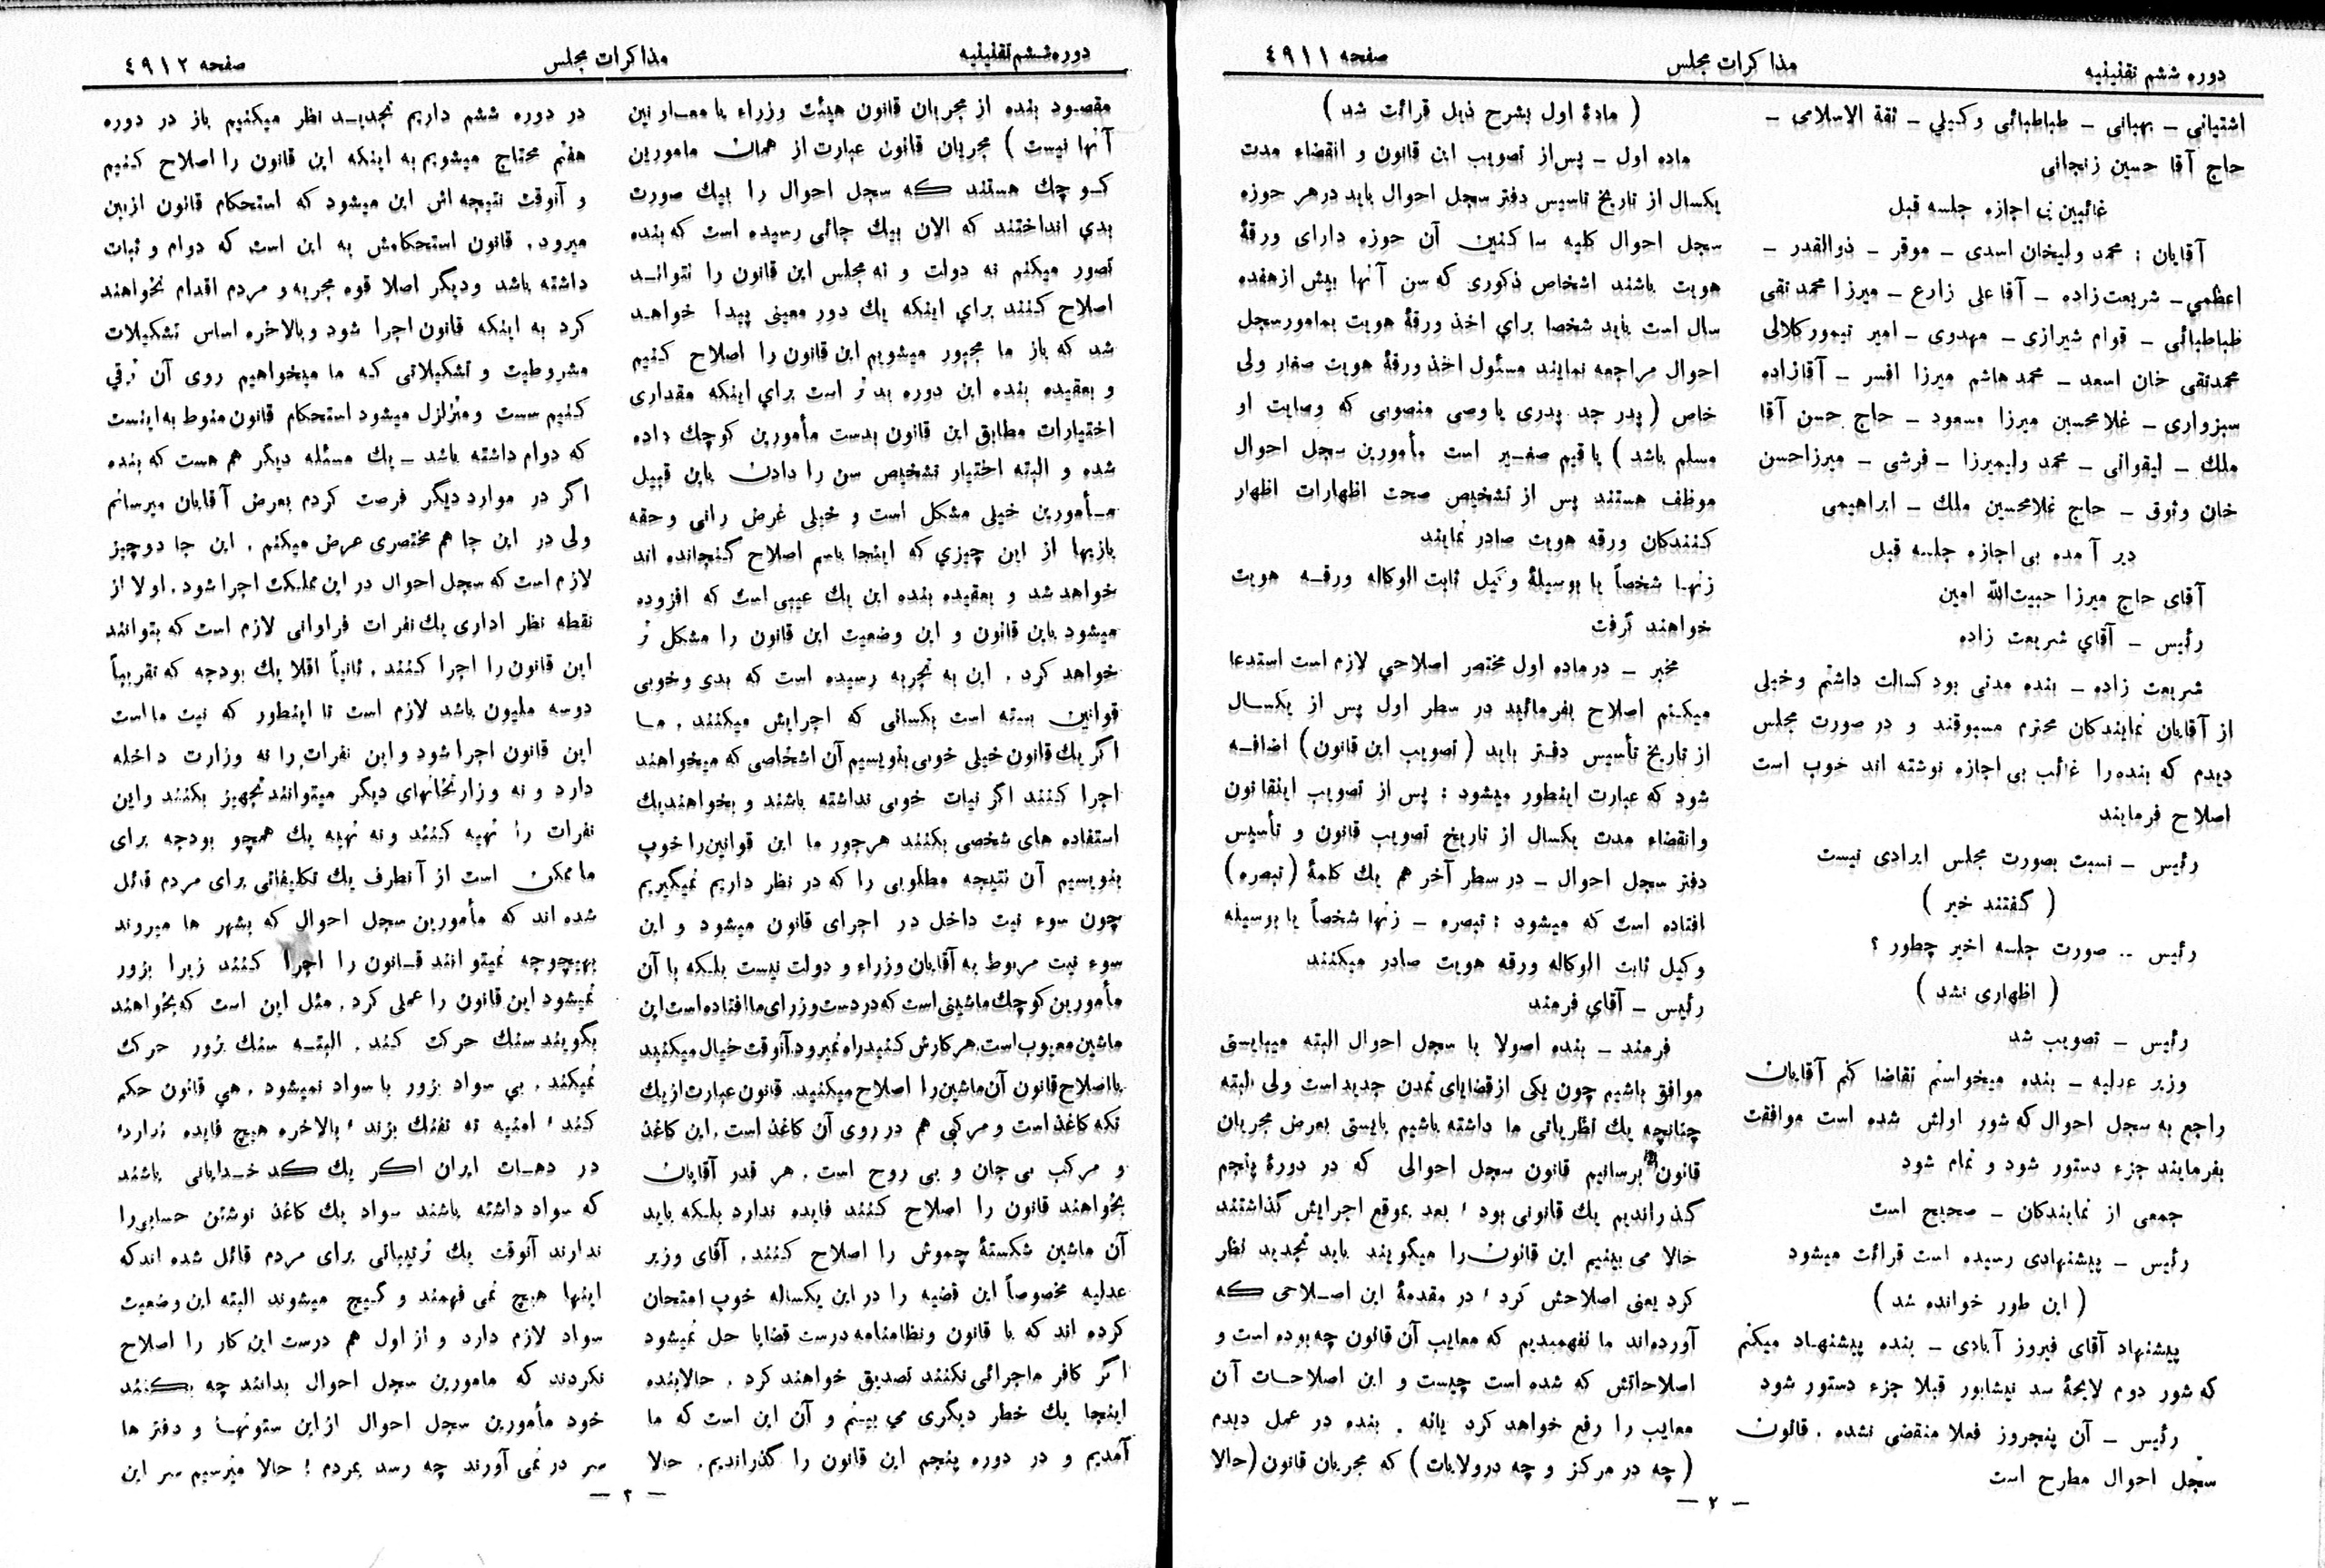 دوره ششم تقنینیه
مذاکرات مجلس
صفحه ٤٩١١
اشتیانی ـ بهبهانی ـ طباطبائی وکیلی ـ ثقة الاسلامی ـ
حاج آقا حسین زنجانی
غائبین بی اجازه جلسه قبل
آقایان : محمد ولیخان اسدی ـ موقر ـ ذوالقدر ـ
اعظمی ـ شریعت زاده ـ آقا علی زارع ـ میرزا محمد تقی
طباطبائی ـ قوام شیرازی ـ مهدوی ـ امیر تیمور کلالی
محمدتقی خان اسعد ـ محمد هاشم میرزا افسر ـ آقازاده
سبزواری ـ غلامحسین میرزا مسعود ـ حاج حسن آقا
ملك ـ لیقوانی ـ محمد ولیمیرزا ـ فرشی ـ میرزا حسن
خان وثوق ـ حاج غلامحسین ملك ـ ابراهیمی
دیر آمده بی اجازه جلسه قبل
آقای حاج میرزا حبیب‌الله امین
رئیس ـ آقای شریعت زاده
شریعت زاده ـ بنده مدتی بود کسالت داشتم و خیلی
از آقایان نمایندکان محترم مسبوقند و در صورت مجلس
دیدم که بنده را غائب بی اجازه نوشته اند خوب است
اصلاح فرمایند
رئیس ـ نسبت بصورت مجلس ایرادی نیست
( گفتند خیر )
رئیس .. صورت جلسه اخیر چطور ؟
( اظهاری نشد )
رئیس ـ تصویب شد
وزیر عدلیه ـ بنده میخواستم تقاضا کنم آقایان
راجع به سجل احوال که شور اولش شده است موافقت
بفرمایند جزء دستور شود و تمام شود
جمعی از نمایندکان ـ صحیح است
رئیس ـ پیشنهادی رسیده است قرائت میشود
( این طور خوانده شد )
پیشنهاد آقای فیروز آبادی ـ بنده پیشنهاد میکنم
که شور دوم لایحهٔ سد نیشابور قبلا جزء دستور شود
رئیس ـ آن پنجروز فعلا منقضی نشده . قانون
سجل احوال مطرح است
( مادهٔ اول بشرح ذیل قرائت شد )
ماده اول ـ پس از تصویب این قانون و انقضاء مدت
یکسال از تاریخ تاسیس دفتر سجل احوال باید درهر حوزه
سجل احوال کلیه ساکنین آن حوزه دارای ورقهٔ
هویت باشند اشخاص ذکوری که سن آنها بیش از هفده
سال است باید شخصا برای اخذ ورقهٔ هویت بمامور سجل
احوال مراجعه نمایند مسئول اخذ ورقهٔ هویت صغار ولی
خاص ( پدر جد پدری یا وصی منصوبی که وصایت او
مسلم باشد ) یا قیم صغیر است مأمورین سجل احوال
موظف هستند پس از تشخیص صحت اظهارات اظهار
کنندکان ورقه هویت صادر نمایند
زنها شخصاً یا بوسیلهٔ وکیل ثابت الوکاله ورقه هویت
خواهند گرفت
مخبر ـ در ماده اول مختصر اصلاحی لازم است استدعا
میکنم اصلاح بفرمائید در سطر اول پس از یکسال
از تاریخ تأسیس دفتر باید ( تصویب این قانون ) اضافه
شود که عبارت اینطور میشود : پس از تصویب اینقانون
وانقضاء مدت یکسال از تاریخ تصویب قانون و تأسیس
دفتر سجل احوال ـ در سطر آخر هم یك کلمهٔ ( تبصره )
افتاده است که میشود : تبصره ـ زنها شخصاً یا بوسیله
وکیل ثابت الوکاله ورقه هویت صادر میکنند
رئیس ـ آقای فرمند
فرمند ـ بنده اصولا با سجل احوال البته میبایستی
موافق باشیم چون یکی از قضایای تمدن جدید است ولی البته
چنانچه یك نظریاتی ما داشته باشیم بایستی بعرض مجریان
قانون برسانیم قانون سجل احوالی که در دورهٔ پنجم
گذراندیم یك قانونی بود ، بعد بموقع اجرایش گذاشتند
حالا می بینیم این قانون را میگویند باید تجدید نظر
کرد یعنی اصلاحش کرد ، در مقدمهٔ این اصلاحی که
آورده‌اند ما نفهمیدیم که معایب آن قانون چه بوده است و
اصلاحاتش که شده است چیست و این اصلاحات آن
معایب را رفع خواهد کرد یانه . بنده در عمل دیدم
( چه در مرکز و چه درولایات ) که مجریان قانون (حالا
ـ ٢ ـ
دوره ششم تقنینیه
مذاکرات مجلس
صفحه ٤٩١٢
مقصود بنده از مجریان قانون هیئت وزراء یا معاونین
آنها نیست ) مجریان قانون عبارت از همان مامورین
کوچك هستند که سجل احوال را بیك صورت
بدی انداختند که الان بیك جائی رسیده است که بنده
تصور میکنم نه دولت و نه مجلس این قانون را نتواند
اصلاح کنند برای اینکه یك دور معینی پیدا خواهد
شد که باز ما مجبور میشویم این قانون را اصلاح کنیم
و بعقیده بنده این دوره بدتر است برای اینکه مقداری
اختیارات مطابق این قانون بدست مأمورین کوچك داده
شده و البته اختیار تشخیص سن را دادن باین قبیل
مأمورین خیلی مشکل است و خیلی غرض رانی و حقه
بازیها از این چیزی که اینجا باسم اصلاح گنجانده اند
خواهد شد و بعقیده بنده این یك عیبی است که افزوده
میشود باین قانون و این وضعیت این قانون را مشکل تر
خواهد کرد . این به تجربه رسیده است که بدی و خوبی
قوانین بسته است بکسانی که اجرایش میکنند . ما
اگر یك قانون خیلی خوبی بنویسیم آن اشخاصی که میخواهند
اجرا کنند اگر نیات خوبی نداشته باشند و بخواهند یك
استفاده های شخصی بکنند هرجور ما این قوانین را خوب
بنویسیم آن نتیجه مطلوبی را که در نظر داریم نمیگیریم
چون سوء نیت داخل در اجرای قانون میشود و این
سوء نیت مربوط به آقایان وزراء و دولت نیست بلکه با آن
مأمورین کوچك ماشینی است که در دست وزرای ما افتاده است این
ماشین معیوب است.هر کارش کنید راه نمیرود.آنوقت خیال میکنید
با اصلاح قانون آن ماشین را اصلاح میکنید. قانون عبارت از یك
تکه کاغذ است و مرکبی هم در روی آن کاغذ است . این کاغذ
و مرکب بی جان و بی روح است . هر قدر آقایان
بخواهند قانون را اصلاح کنند فایده ندارد بلکه باید
آن ماشین شکستهٔ چموش را اصلاح کنند . آقای وزیر
عدلیه مخصوصاً این قضیه را در این یکساله خوب امتحان
کرده اند که با قانون ونظامنامه درست قضایا حل نمیشود
اگر کافر ماجرائی نکنند تصدیق خواهند کرد . حالا بنده
اینجا یك خطر دیگری می بینم و آن این است که ما
آمدیم و در دوره پنجم این قانون را گذراندیم . حالا
در دوره ششم داریم تجدید نظر میکنیم باز در دوره
هفتم محتاج میشویم به اینکه این قانون را اصلاح کنیم
و آنوقت نتیجه اش این میشود که استحکام قانون ازبین
میرود . قانون استحکامش به این است که دوام و ثبات
داشته باشد ودیگر اصلا قوه مجریه و مردم اقدام نخواهند
کرد به اینکه قانون اجرا شود و بالاخره اساس تشکیلات
مشروطیت و تشکیلاتی که ما میخواهیم روی آن ترقی
کنیم سست و متزلزل میشود استحکام قانون منوط به اینست
که دوام داشته باشد ـ یك مسئله دیگر هم هست که بنده
اگر در موارد دیگر فرصت کردم بعرض آقایان میرسانم
ولی در این جا هم مختصری عرض میکنم . این جا دو چیز
لازم است که سجل احوال در این مملکت اجرا شود . اولا از
نقطه نظر اداری یك نفرات فراوانی لازم است که بتوانند
این قانون را اجرا کنند . ثانیاً اقلا یك بودجه که تقریباً
دوسه ملیون باشد لازم است تا اینطور که نیت ما است
این قانون اجرا شود و این نفرات را نه وزارت داخله
دارد و نه وزارتخانهای دیگر میتوانند تجهیز بکنند و این
نفرات را تهیه کنند و نه تهیه یك همچو بودجه برای
ما ممکن است از آنطرف یك تکلیفاتی برای مردم قائل
شده اند که مأمورین سجل احوال که بشهر ها میروند
بهیچوجه نمیتوانند قانون را اجرا کنند زیرا بزور
نمیشود این قانون را عملی کرد . مثل این است که بخواهند
بگویند سنك حرکت کند . البته سنك بزور حرکت
نمیکند . بی سواد بزور با سواد نمیشود . هی قانون حکم
کند ، امنیه ته تفنك بزند ، بالاخره هیچ فایده ندارد ،
در دهات ایران اگر یك کدخدایانی باشند
که سواد داشته باشند سواد یك کاغذ نوشتن حسابی را
ندارند آنوقت یك ترتیباتی برای مردم قائل شده اند که
اینها هیچ نمی فهمند و گیج میشوند البته این وضعیت
سواد لازم دارد و از اول هم درست این کار را اصلاح
نکردند که مامورین سجل احوال بدانند چه بکنند
خود مأمورین سجل احوال از این ستونها و دفتر ها
سر در نمی آورند چه رسد بمردم ! حالا میرسیم سر این
ـ ٢ ـ